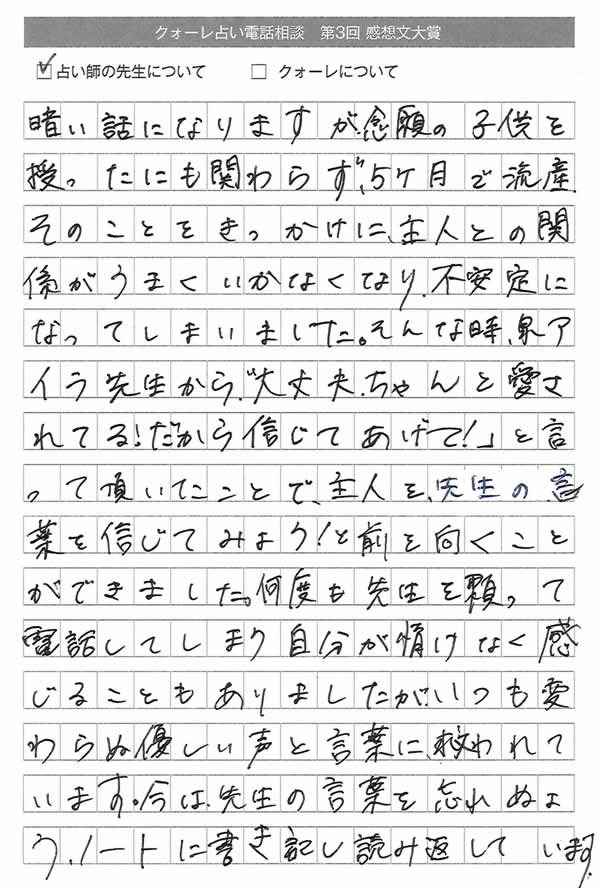 クォーレ占い電話相談　第3回 感想文大賞
☑ 占い師の先生について　□ クォーレについて
暗い話になりますが、念願の子供を
授ったにも関わらず、5ケ月で流産。
そのことをきっかけに、主人との関
係がうまくいかなくなり、不安定に
なってしまいました。そんな時、泉ア
イラ先生から、“大丈夫、ちゃんと愛さ
れてる!だから信じてあげて!」と言
って頂いたことで、主人を、先生の言
葉を信じてみよう!と前を向くこと
ができました。何度も先生を頼って
電話してしまう自分が情けなく感
じることもありましたが、いつも変
わらぬ優しい声と言葉に、救われて
います。今は、先生の言葉を忘れぬよ
う、ノートに書き記し読み返しています。